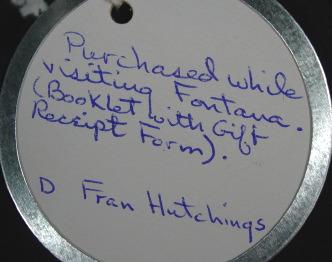 Purchased while
visiting Fontana.
(Booklet with Gift
Receipt Form).
D Fran Hutchings